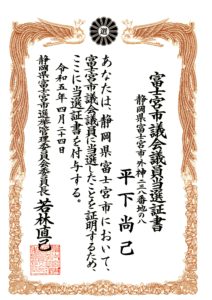 選
富士宮市議会議員当選証書
静岡県富士宮市外神二二八番地の八
平下尚己
あなたは、静岡県富士宮市において、
富士宮市議会議員に当選したことを証明するため、
ここに当選証書を付与する。
令和五年四月二十四日
静岡県富士宮市選挙管理委員会委員長 若林直己